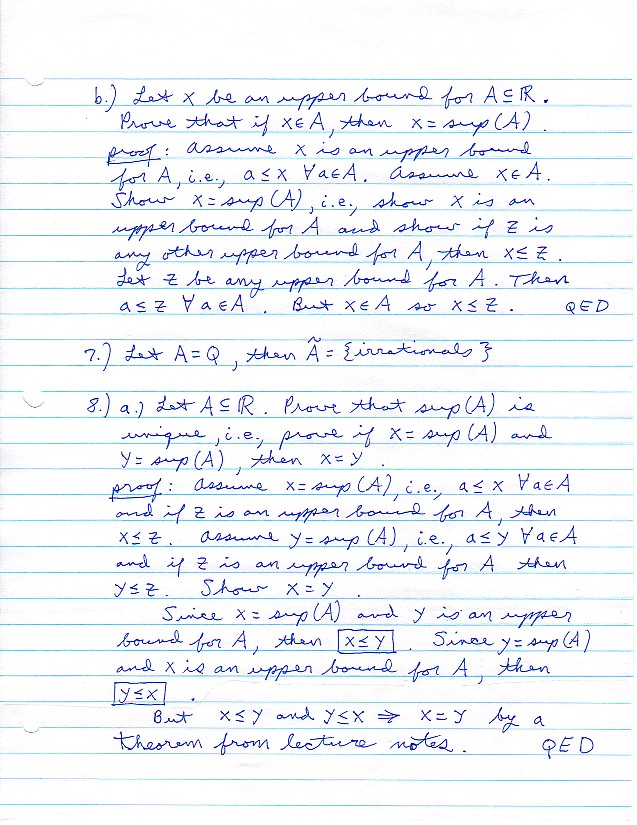 b.) Let x be an upper bound for A ⊆ ℝ.
Prove that if x ∈ A, then x = sup(A).
proof: Assume x is an upper bound
for A, i.e., a ≤ x ∀ a ∈ A. Assume x ∈ A.
Show x = sup(A), i.e., show x is an
upper bound for A and show if z is
any other upper bound for A, then x ≤ z.
Let z be any upper bound for A. Then
a ≤ z ∀ a ∈ A. But x ∈ A so x ≤ z. QED
7.) Let A = Q, then Ã = {irrationals}
8.) a.) Let A ⊆ ℝ. Prove that sup(A) is
unique, i.e., prove if x = sup(A) and
y = sup(A), then x = y.
proof: Assume x = sup(A), i.e., a ≤ x ∀ a ∈ A
and if z is an upper bound for A, then
x ≤ z. Assume y = sup(A), i.e., a ≤ y ∀ a ∈ A
and if z is an upper bound for A then
y ≤ z. Show x = y.
Since x = sup(A) and y is an upper
bound for A, then x ≤ y. Since y = sup(A)
and x is an upper bound for A, then
y ≤ x.
But x ≤ y and y ≤ x ⇒ x = y by a
theorem from lecture notes. QED